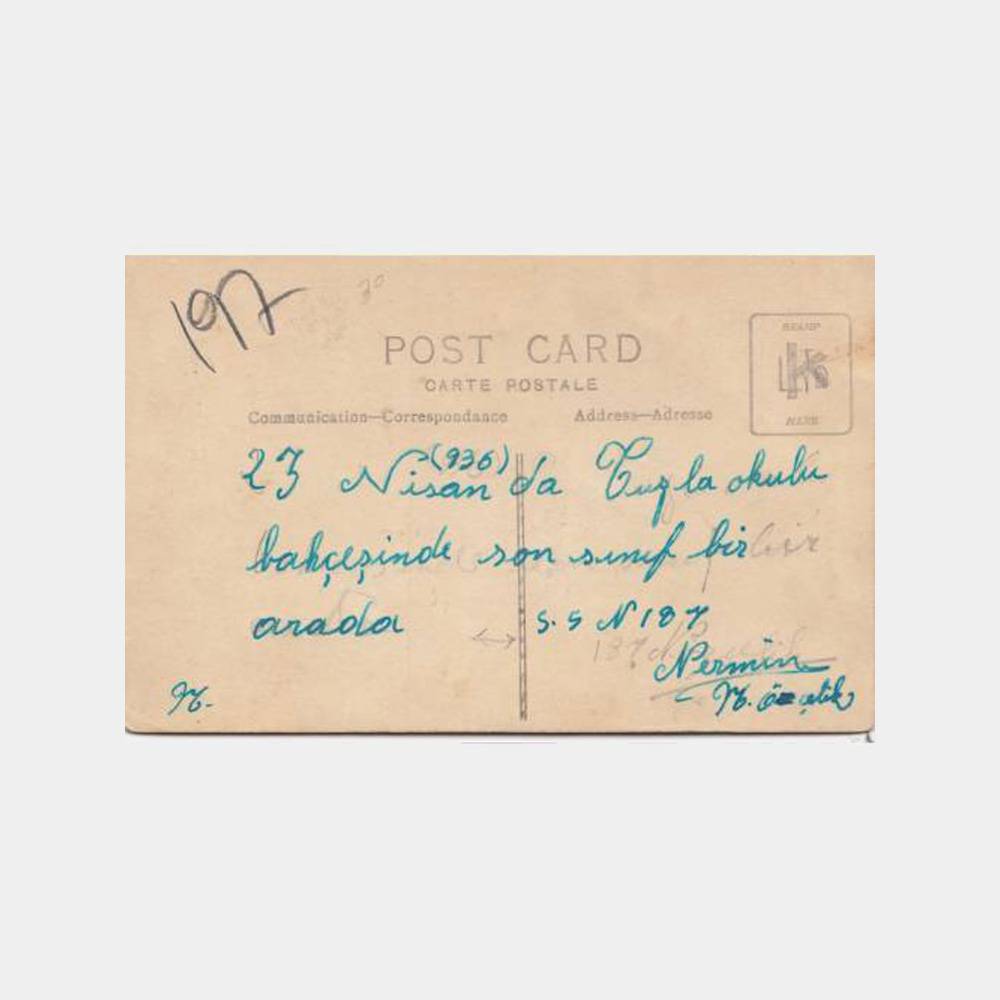 197
30
POST CARD
CARTE POSTALE
Communication—Correspondance Address—Adresse
STAMP
HERE
23 Nisan (936) da Tuğla okulu
bahçeşinde son sınıf bir bir
arada S. S N 187
187
Nermin
N. özçelik
N.